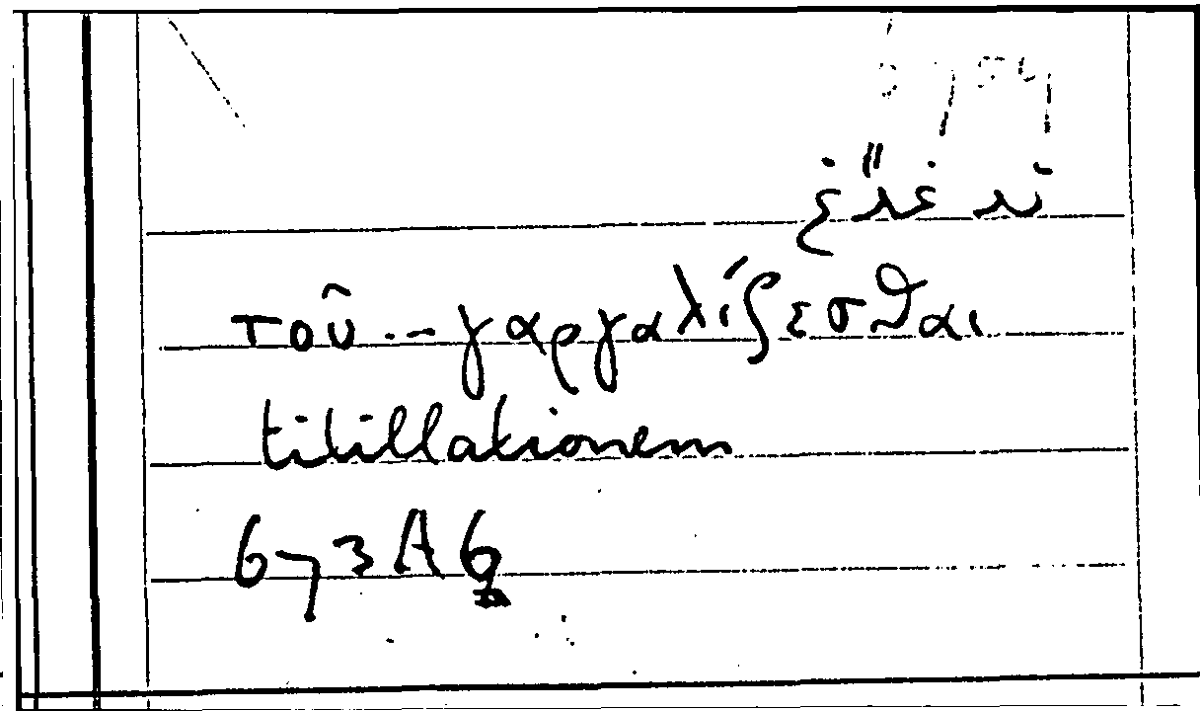 تدغدغ
τοῦ .– γαργαλίζεσθαι
titillationem
673 A 6